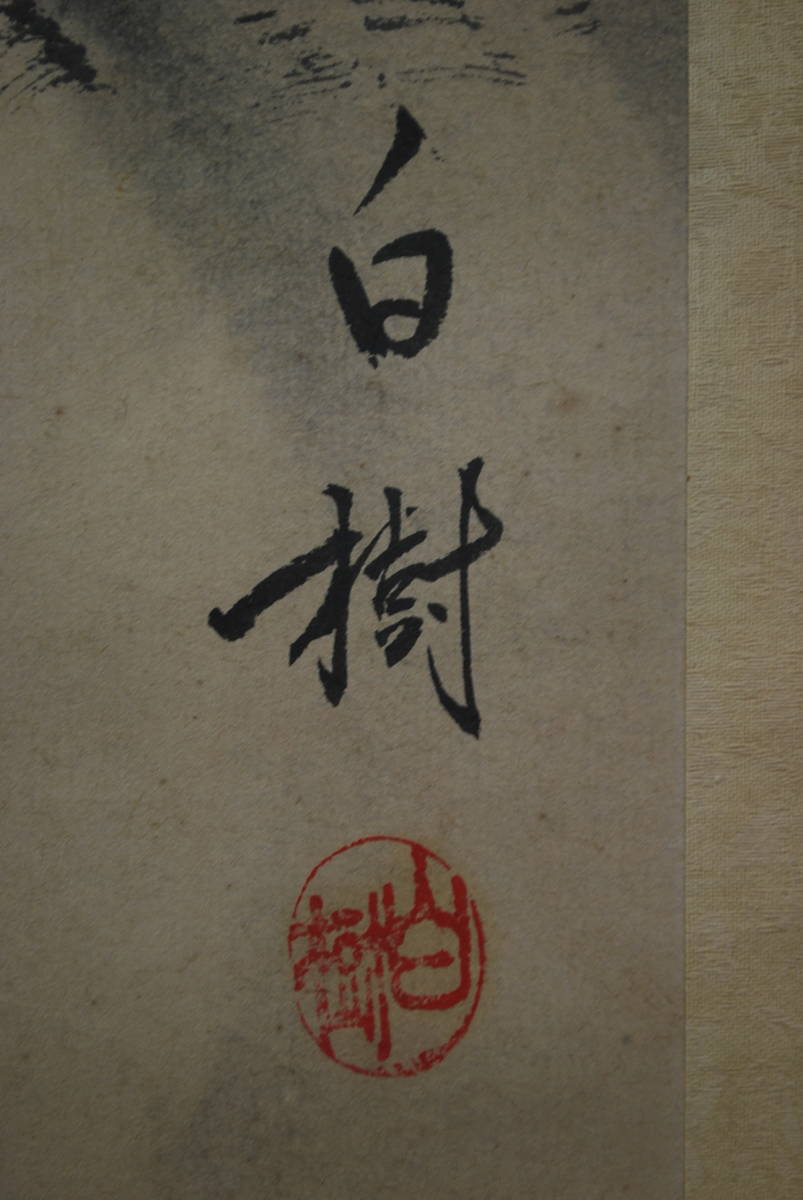 白樹
白樹